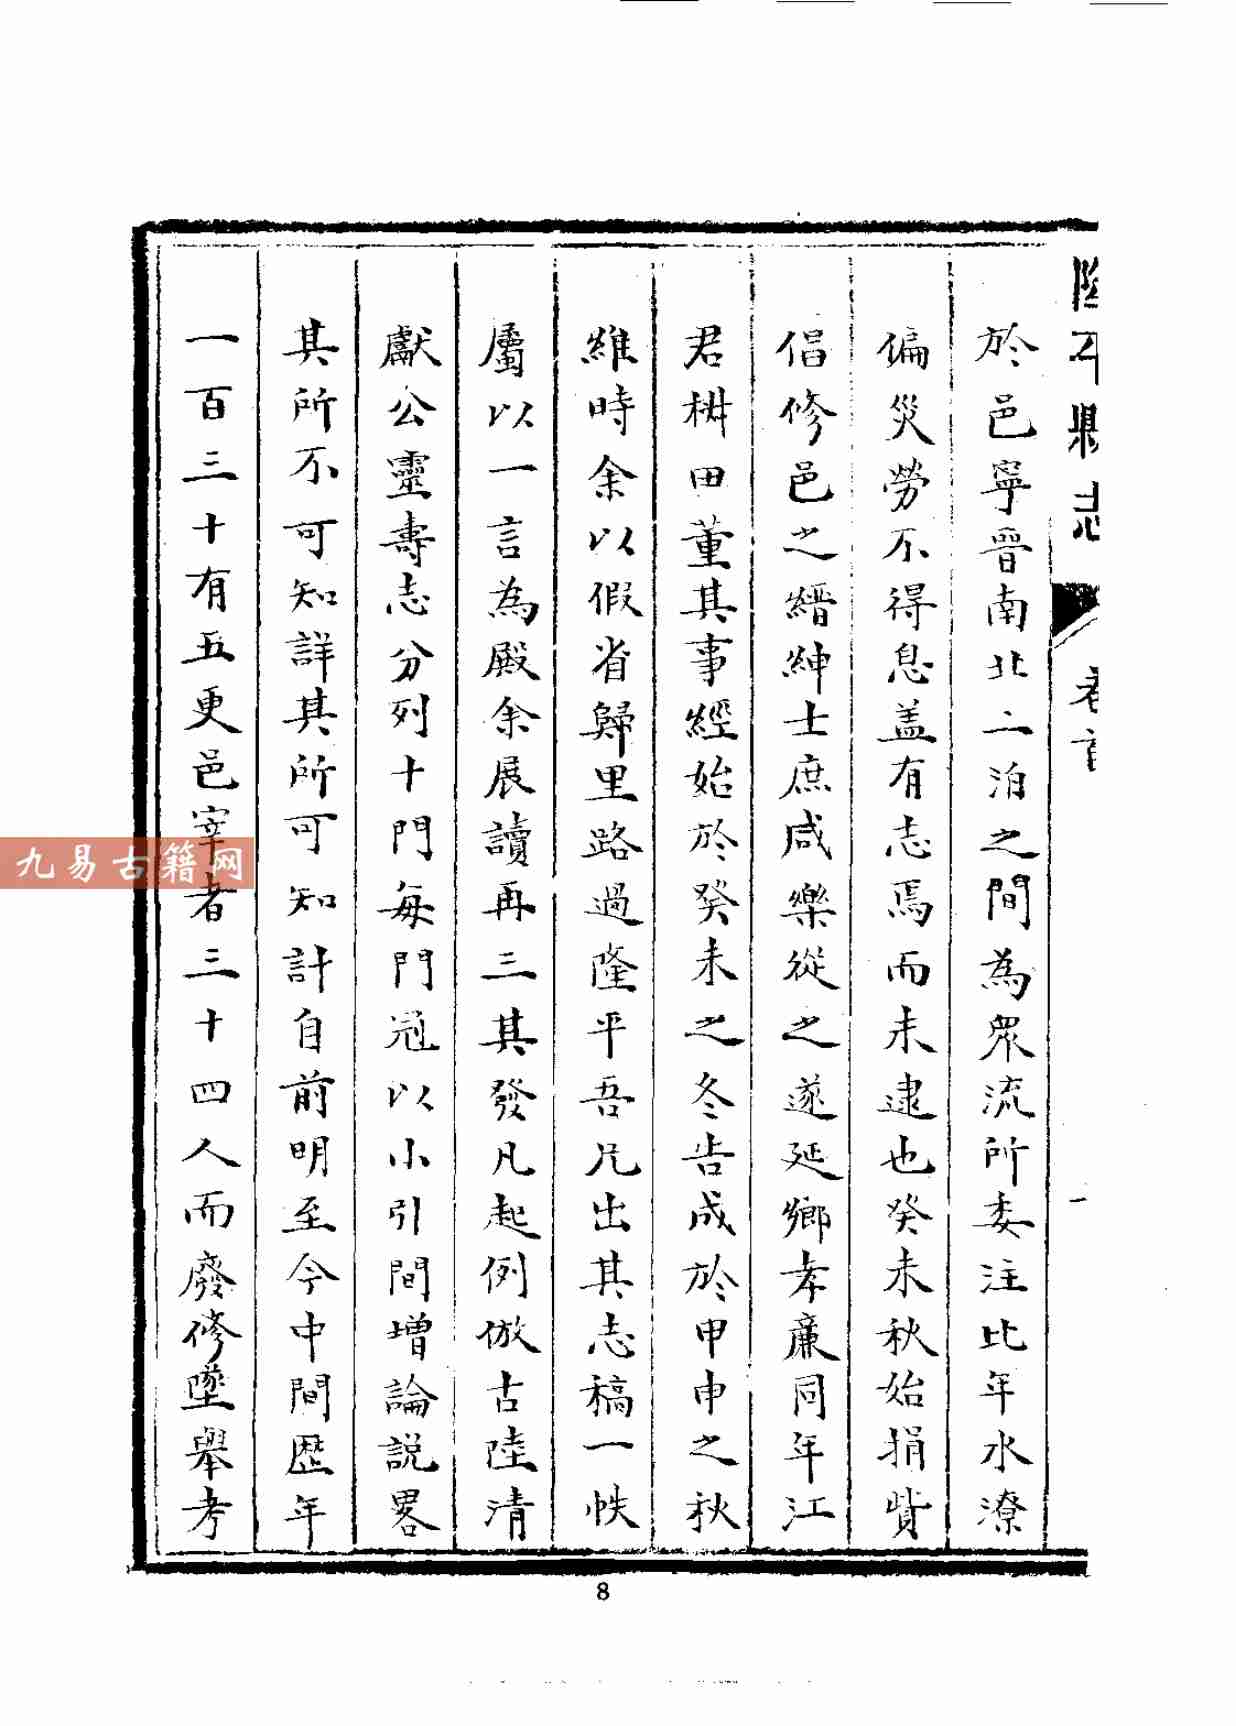 隆平縣志
卷首
一
於邑寧晉南北二泊之間為眾流所委注比年水潦
偏災勞不得息盖有志焉而未逮也癸未秋始捐貲
倡修邑之縉紳士庶咸樂從之遂延鄉孝廉同年江
君耕田董其事經始於癸未之冬告成於甲申之秋
維時余以假省歸里路過隆平吾凡出其志稿一帙
屬以一言為殿余展讀再三其發凡起例倣古陸清
獻公靈壽志分列十門每門冠以小引間增論説畧
其所不可知詳其所可知計自前明至今中間歷年
一百三十有五更邑宰者三十四人而廢修墜舉考
九易古籍网
8